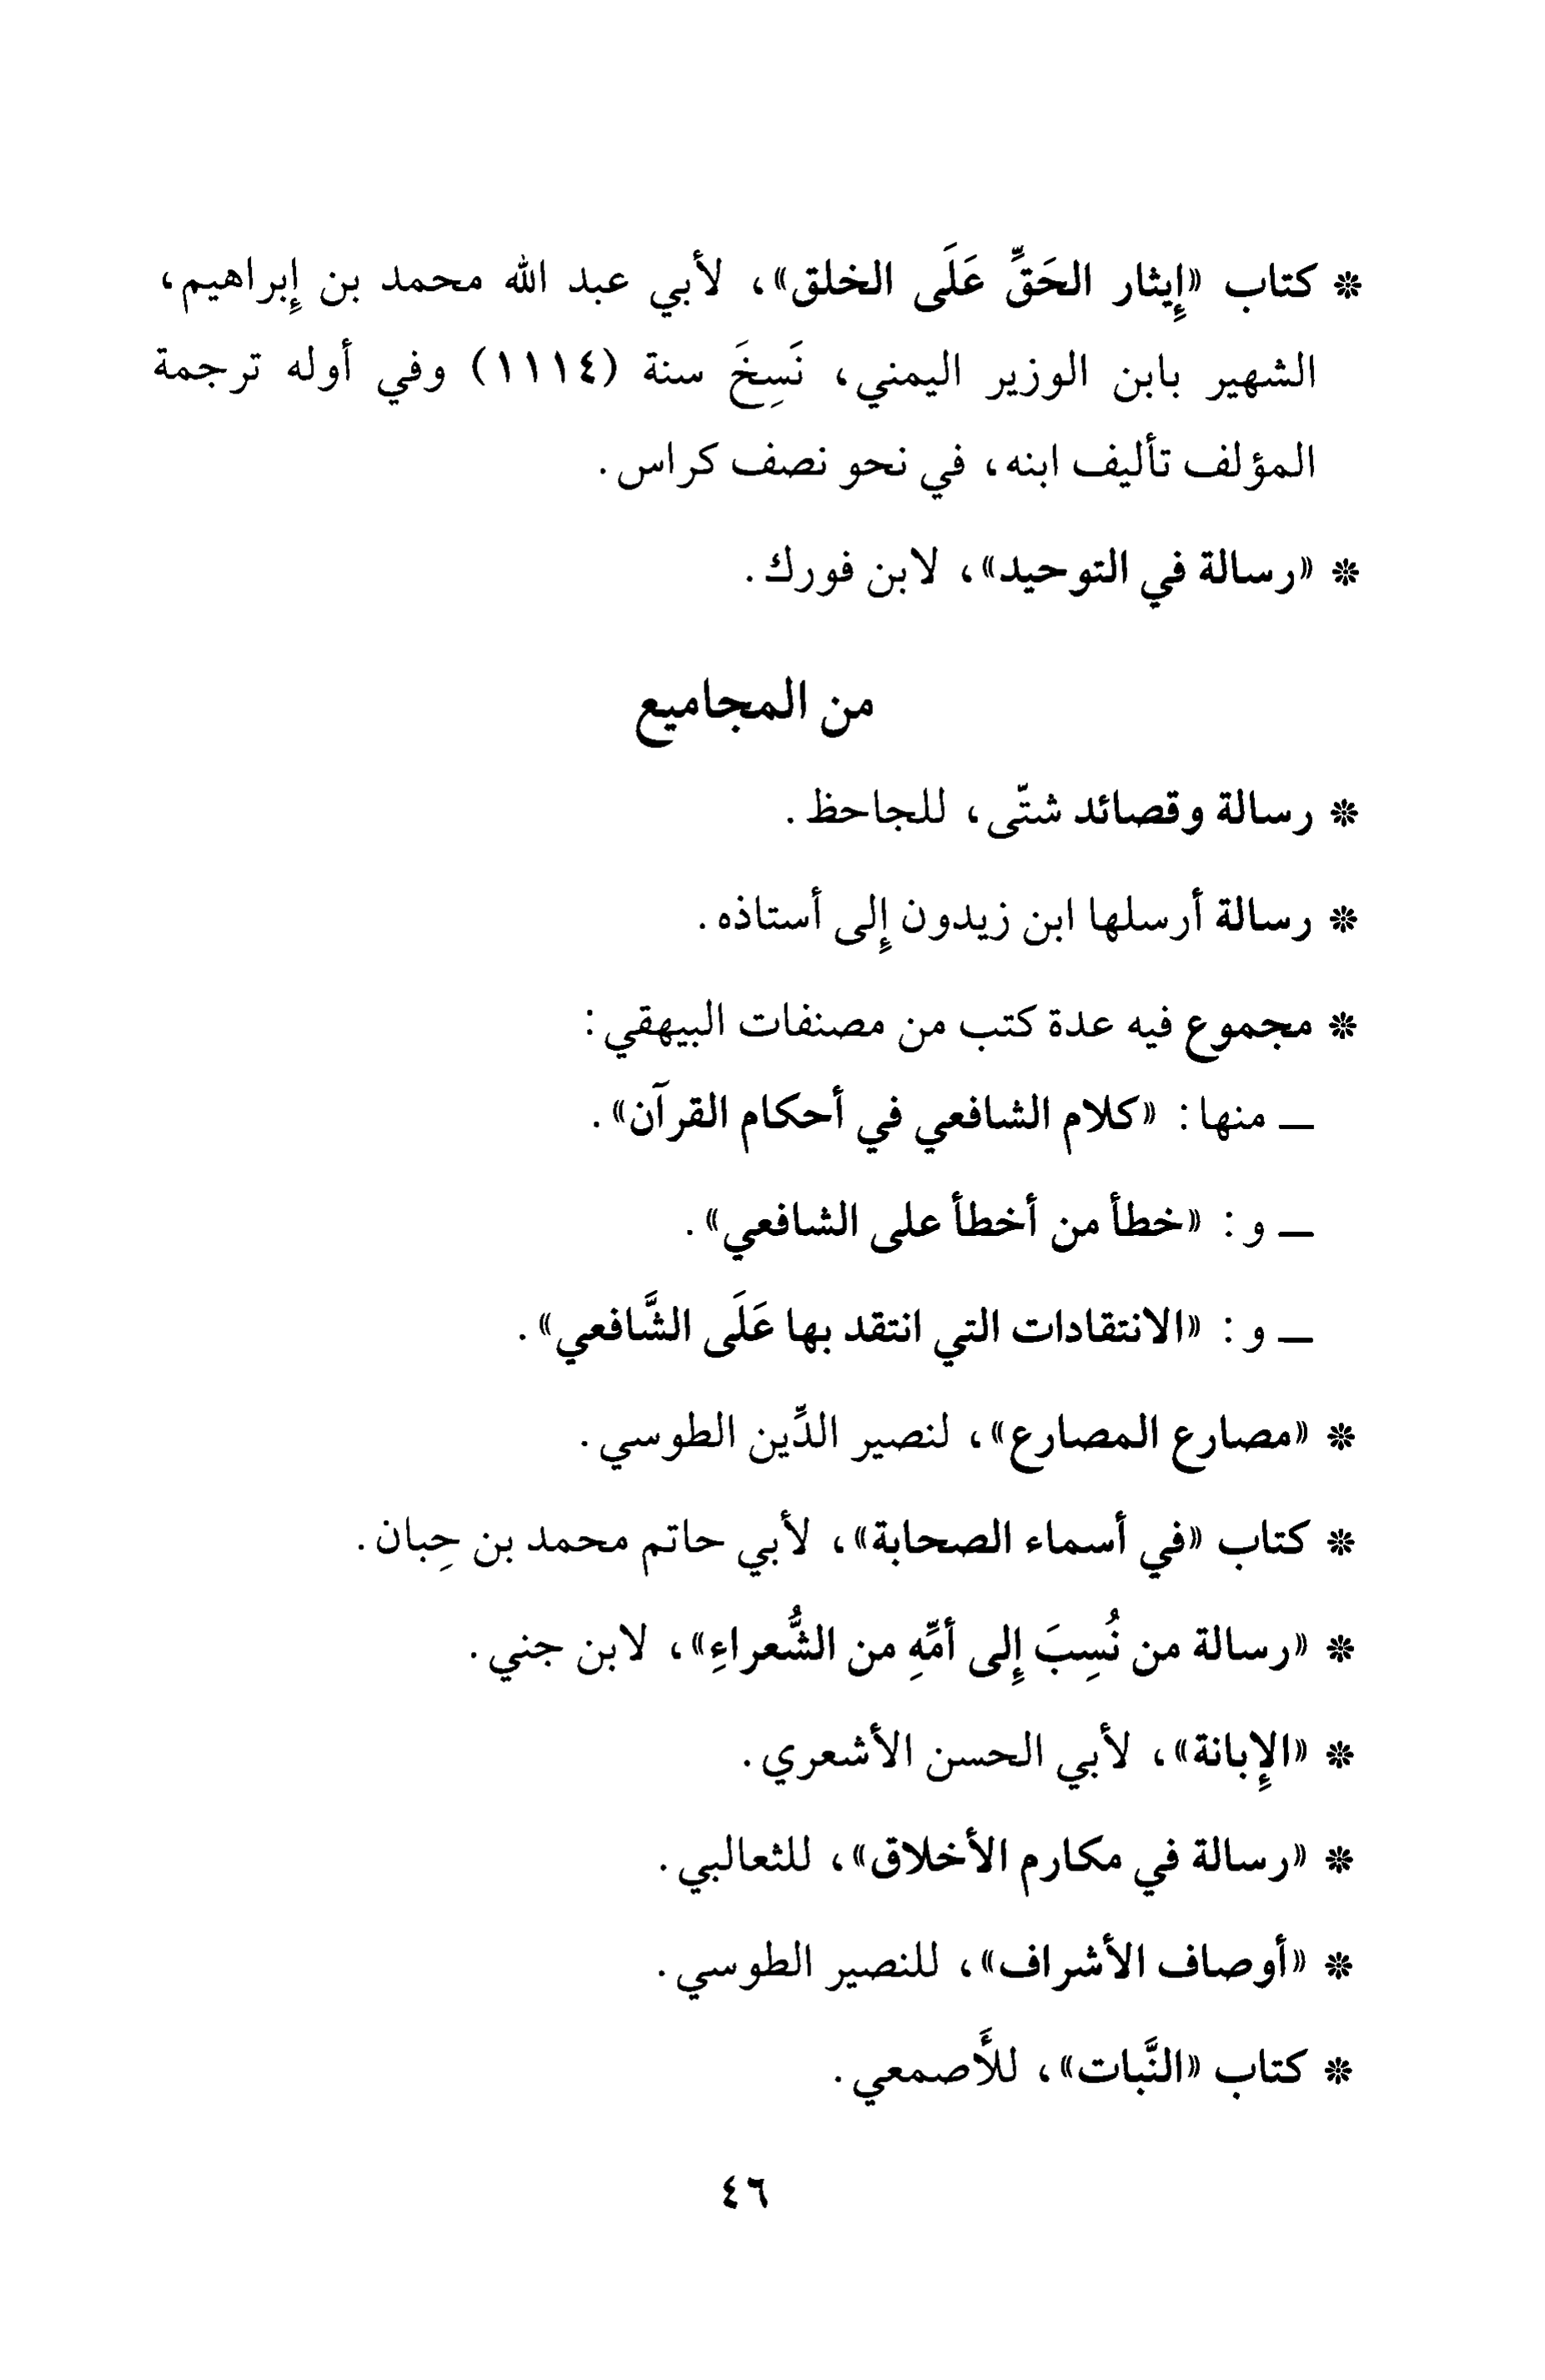 * كتاب «إِيثار الحَقِّ عَلَى الخلق»، لأبي عبد الله محمد بن إِبراهيم،
الشهير بابن الوزير اليمني، نَسِخَ سنة (١١١٤) وفي أوله ترجمة
المؤلف تأليف ابنه، في نحو نصف كراس.
* «رسالة في التوحيد»، لابن فورك.
من المجاميع
* رسالة وقصائد شتّى، للجاحظ.
* رسالة أرسلها ابن زيدون إِلى أستاذه.
* مجموع فيه عدة كتب من مصنفات البيهقي:
ـ منها: «كلام الشافعي في أحكام القرآن».
ـ و: «خطأ من أخطأ على الشافعي».
ـ و: «الانتقادات التي انتقد بها عَلَى الشَّافعي».
* «مصارع المصارع»، لنصير الدِّين الطوسي.
* كتاب «في أسماء الصحابة»، لأبي حاتم محمد بن حِبان.
* «رسالة من نُسِبَ إِلى أمِّهِ من الشُّعراءِ»، لابن جني.
* «الإِبانة»، لأبي الحسن الأشعري.
* «رسالة في مكارم الأخلاق»، للثعالبي.
* «أوصاف الأشراف»، للنصير الطوسي.
* كتاب «النَّبات»، للأَصمعي.
٤٦